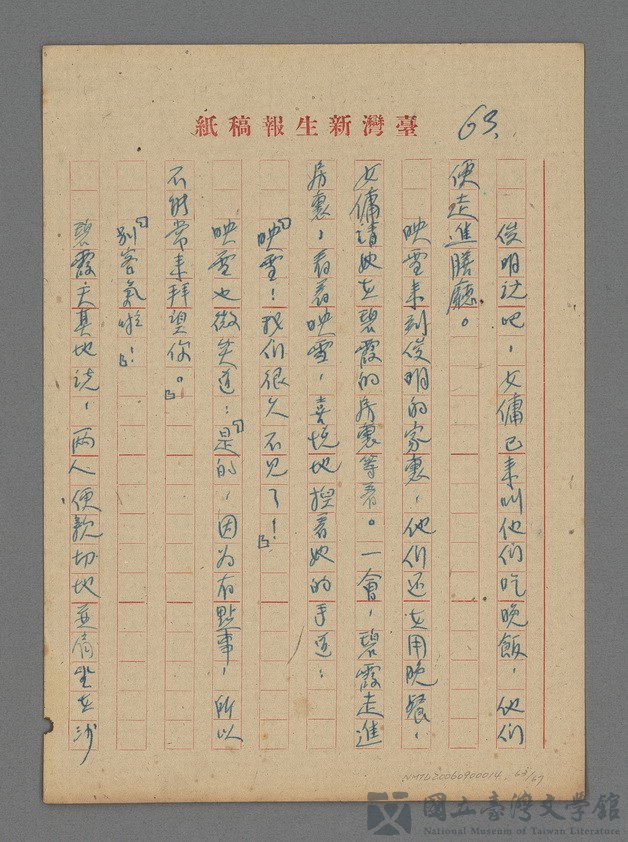 臺灣新生報稿紙
63.
俊明说吧，女傭已来叫他们吃晚飯，他们
便走進膳廳。
映雪来到俊明的家裏，他们还在用晚餐，
女傭請她在碧霞的房裏等着。一會，碧霞走進
房裏，看着映雪，喜悦地握着她的手道：
「映雪！我们很久不见了！」
映雪也微笑道：「是的，因为有點事，所以
不能常来拜望你。」
「别客氣啦！」
碧霞夫其地说，两人便親切地並肩坐在沙
NMTL20060900014 63/67
國立臺灣文學館
National Museum of Taiwan Literature